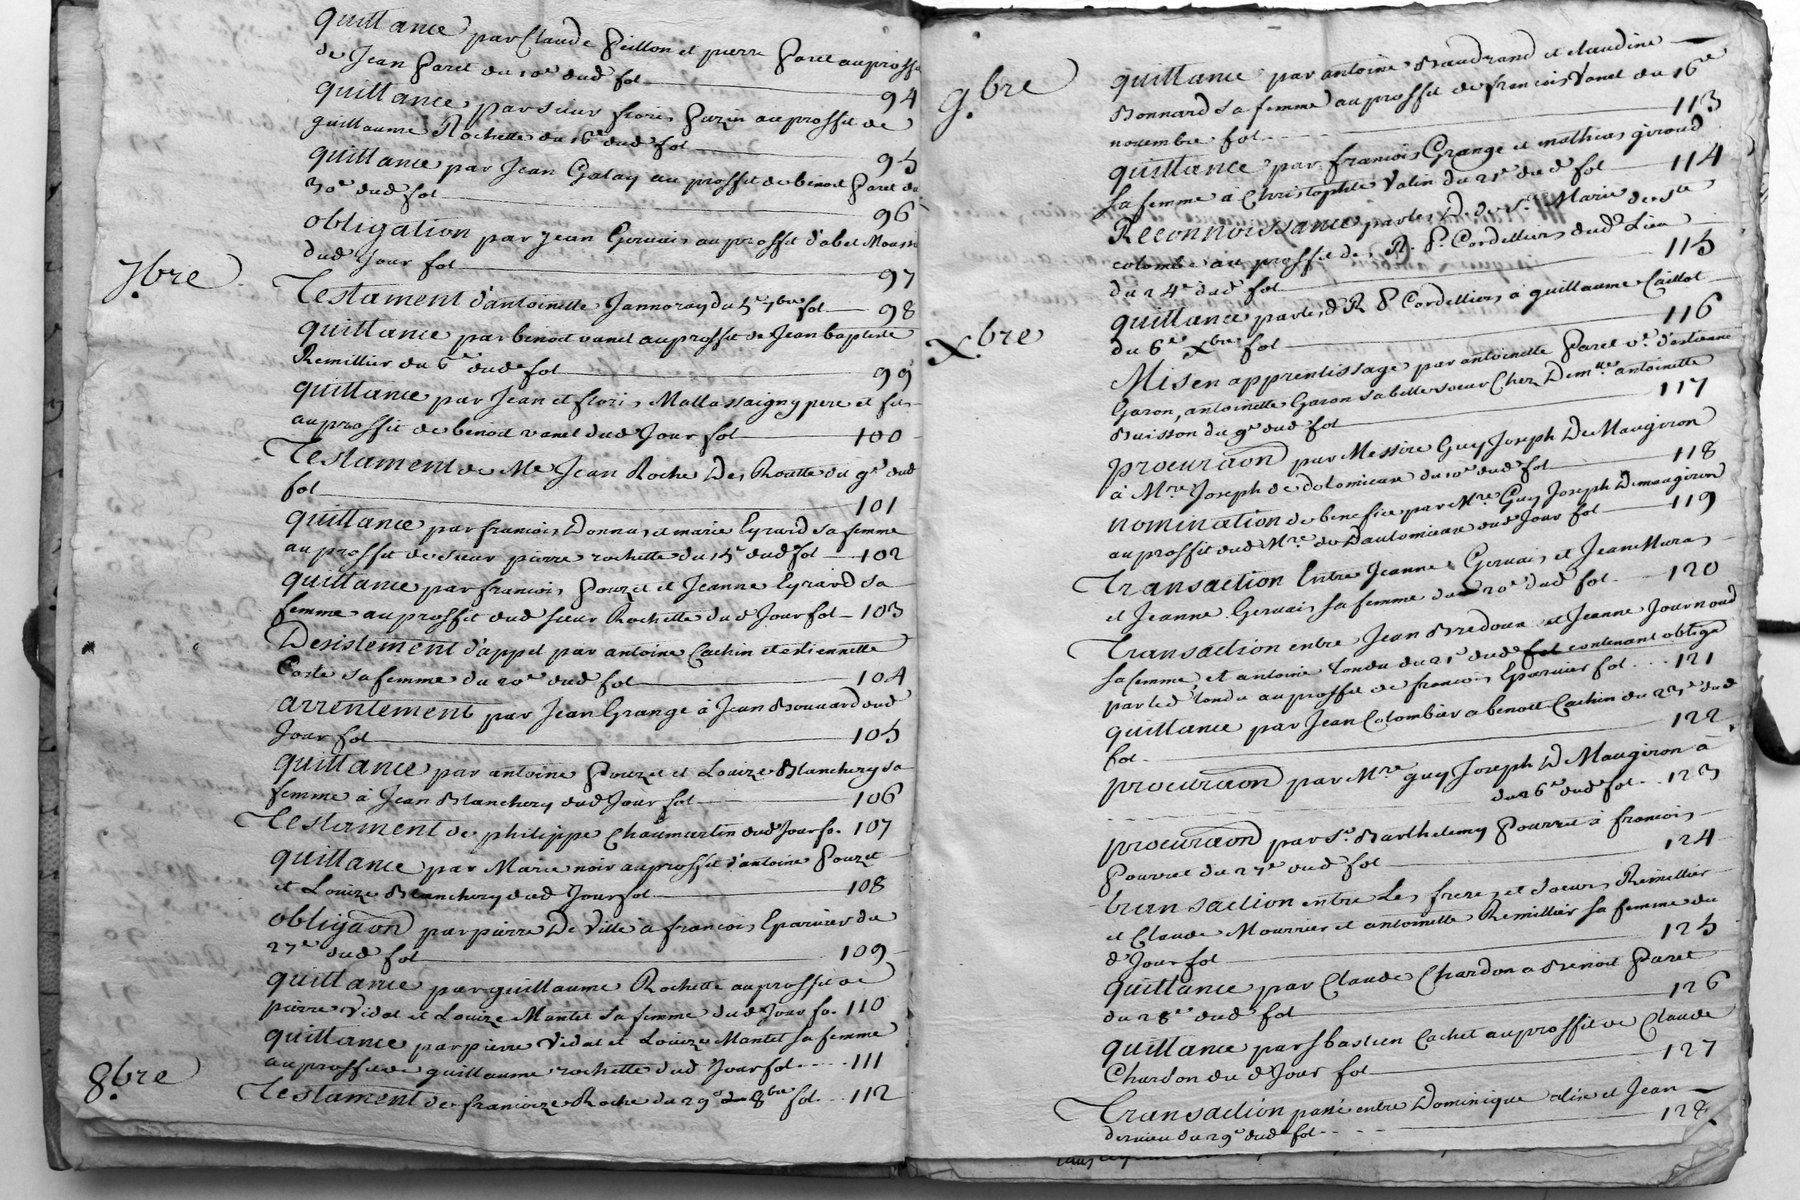 quittance par Claude Peillon et pierre Paret au proffit
de Jean Paret du 10e dud fol 94
quittance par sieur fleuri au proffit de
guillaume Rochette du 16e dud fol 95
quittance par Jean Galay au proffit de benoit Paret du
30e dud fol 96
obligation par Jean Gervais au proffit d'abel
dud Jour fol 97
7.bre
Testament d'antoinette Jannoray du 5e 7bre fol 98
quittance par benoit vanel au proffit de Jean baptiste
Remillier du 6e dud fol 99
quittance par Jean et fleuri Mallassaigny pere et fils
au proffit de benoit vanel dud Jour fol 100
Testament de Me Jean Roche Des Routte du 9e dud
fol 101
quittance par francois Donnas et marie Eyrard sa femme
au proffit de sieur pierre rochette du 15e dud fol 102
quittance par francois Pouzet et Jeanne Eyrard sa
femme au proffit dud sieur Rochette du d Jour fol 103
Desistement d'appel par antoine Cachin et estiennette
Coste sa femme du 20e dud fol 104
arrentement par Jean Grange à Jean Bonnard dud
Jour fol 105
quittance par antoine Pouzet et Louize Blanchery sa
femme à Jean Blanchery dud Jour fol 106
Testament de philippe Chaumartin dud Jour fo. 107
quittance par Marie noir au proffit d'antoine Pouzet
et Louize Blanchery dud Jour fol 108
obligaon par pierre De Ville à francois Eparvier du
27e dud fol 109
quittance par guillaume Rochette au proffit de
pierre Vidal et Louize Mantel sa femme dud Jour fo. 110
quittance par pierre Vidal et Louize Mantel sa femme
au proffit de guillaume rochette dud Jour fol 111
8.bre
Testament de francoize Roche du 29e 8bre fol 112
9.bre
quittance par antoine Baudrand et claudine
Bonnard sa femme au proffit de francois Vanel du 16e
novembre fol 113
quittance par francois Grange et mathias giroud
sa femme à Christophle Valin du 21e dud fol 114
Reconnoissance par les D. de Ste Marie de Ste
colombe au proffit des R. P. Cordelliers dud Lieu
du 24e dud fol 115
X.bre
quittance par lesd R P Cordelliers à guillaume Caillot
du 6e Xbre fol 116
Mis en apprentissage par antoinette Paret ve. d'estienne
Garon, antoinette Garon sa belle soeur Chez Demlle antoinette
Buisson du 9e dud fol 117
procuraon par Messire Guy Joseph De Maugiron
à Mre Joseph de dolomieux du 10e dud fol 118
nomination de benefice par Mre Guy Joseph De maugiron
au proffit dud Mre de Daulomieux dud Jour fol 119
Transaction Entre Jeanne Gervais et Jean Muras
et Jeanne Gervais sa femme du 20e dud fol 120
Transaction entre Jean Bredoux et Jeanne Journoud
sa femme et antoine tondu du 21e dud fol contenant obliga
par led tondu au proffit de francois Eparvier fol 121
quittance par Jean Colombier a benoit Cachin du 23e dud
fol 122
procuraon par Mre guy Joseph D Maugiron à
du 26e dud fol 123
procuraon par Sr. Barthelemy Pourret à francois
Pourret du 27e dud fol 124
transaction entre Les freres et soeurs Remillier
et Claude Mourrier et antoinette Remillier sa femme du
d' Jour fol 125
quittance par Claude Chardon a Benoit Paret
du 28e dud fol 126
quittance par sbastien Cachet au proffit de Claude
Chardon du d Jour fol 127
Transaction passé entre Dominique alix et Jean
du 29e dud fol 128